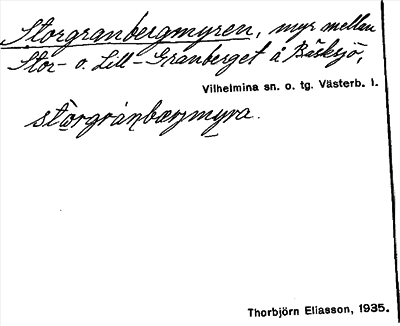 Storgranbergmyren, myr mellan
Stor- o. Lill-Granberget å Bäsksjö,
Vilhelmina sn. o. tg. Västerb. l.
stòrgránbærjmyra.
Thorbjörn Eliasson, 1935.